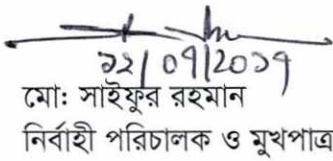 ১২/০৭/২০১৭
মো: সাইফুর রহমান
নির্বাহী পরিচালক ও মুখপাত্র